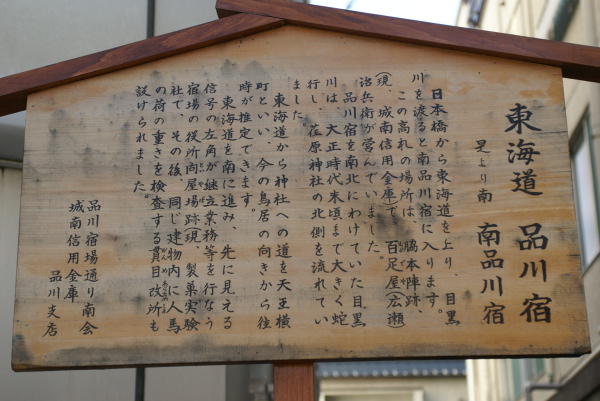 東海道 品川宿
是より南 南品川宿
日本橋から東海道を上り、目黒
川を渡ると南品川宿に入ります。
この高札の場所は、脇本陣跡、
(現 城南信用金庫)で、百足屋(広瀬
治兵衛)が営んでいました。
品川宿を南北にわけていた目黒
川は、大正時代末頃まで大きく蛇
行し、荏原神社の北側を流れてい
ました。
東海道から神社への道を天王横
町といい、今の鳥居の向きから往
時が推定できます。
東海道を南に進み、先に見える
信号の左角が継立業務等を行なう
宿場の役所問屋場跡(現 製菓実験
社)で、その後、同じ建物内に人馬
の荷の重さを検査する貫目改所も
設けられました。
品川宿場通り南会
城南信用金庫
品川支店